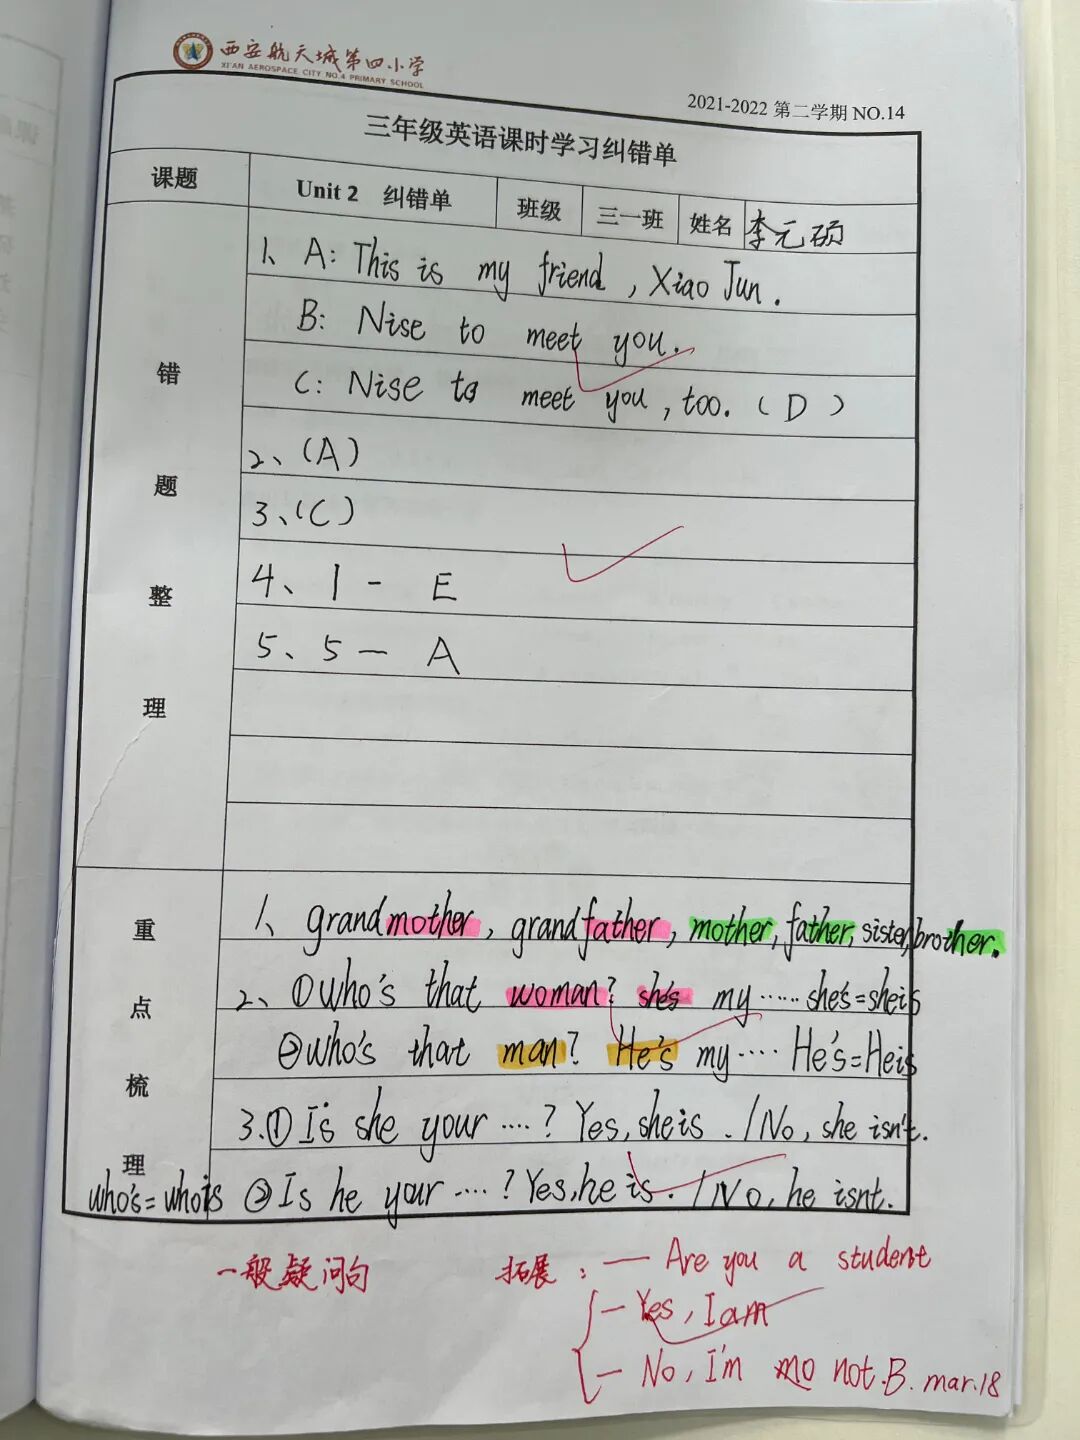 西安航天城第四小学
XI'AN AEROSPACE CITY NO.4 PRIMARY SCHOOL
2021-2022 第二学期 NO.14
三年级英语课时学习纠错单
课题 Unit 2 纠错单 班级 三一班 姓名 李元硕
错题整理
1、A: This is my friend, Xiao Jun.
B: Nise to meet you.
C: Nise to meet you, too. (D)
2、(A)
3、(C)
4、1 - E
5、5 — A
重点梳理
1、grandmother, grandfather, mother, father, sister, brother.
2、①who's that woman? she's my …… she's=she is
②who's that man? He's my …. He's=He is
3.①Is she your ….? Yes, she is. / No, she isn't.
who's=who is ②Is he your ….? Yes, he is. / No, he isnt.
一般疑问句 拓展: — Are you a student
— Yes, I am
— No, I'm no not. B. mar.18